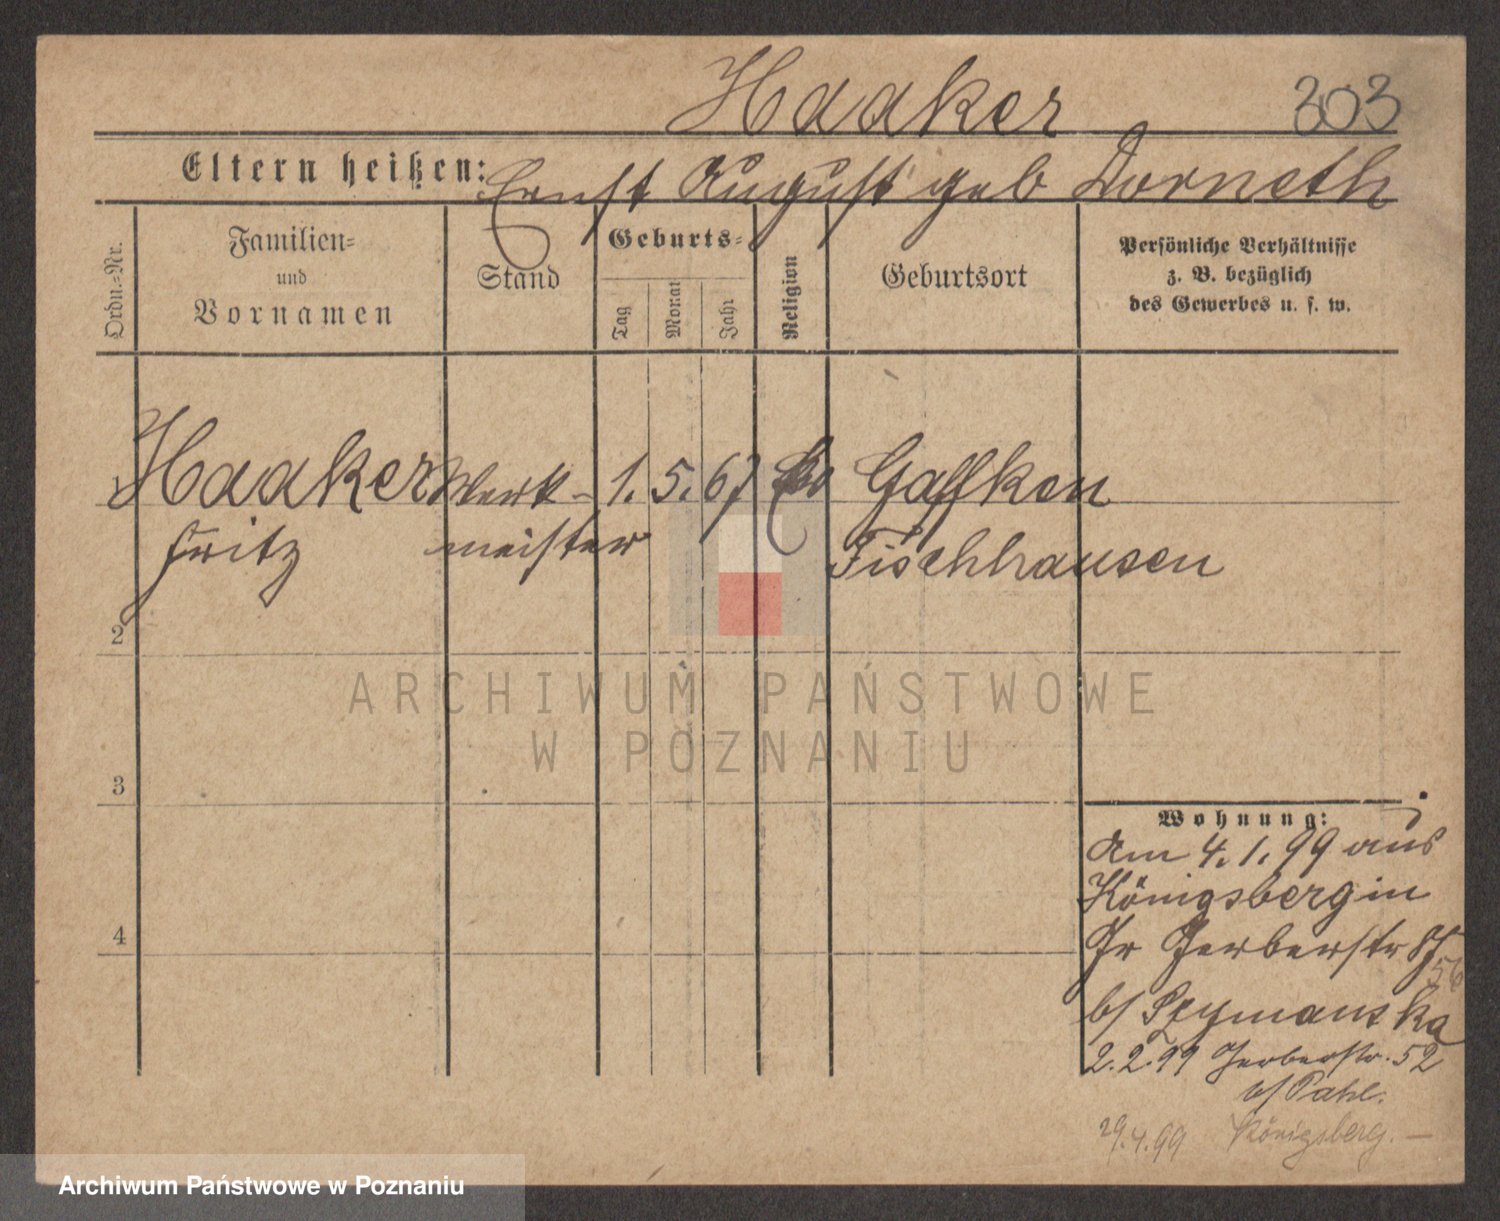 Haaker 303
Eltern heißen: Ernst August geb Dorneth
Ordn.=Nr.
Familien=
und
Vornamen
Stand
Geburts=
Tag
Monat
Jahr
Religion
Geburtsort
Persönliche Verhältnisse
z. B. bezüglich
des Gewerbes u. s. w.
1 Haaker Werk- 1. 5. 67 Gaffken
Fritz meister Fischhausen
2
3
4
ARCHIWUM PAŃSTWOWE
W POZNANIU
Wohnung:
Am 4. 1. 99 aus
Königsberg in
Pr Gerberstr
56
b/ Szymanska
2. 2. 99 Gerberstr. 52
b/ Pahl.
29. 4. 99 Königsberg. —
Archiwum Państwowe w Poznaniu